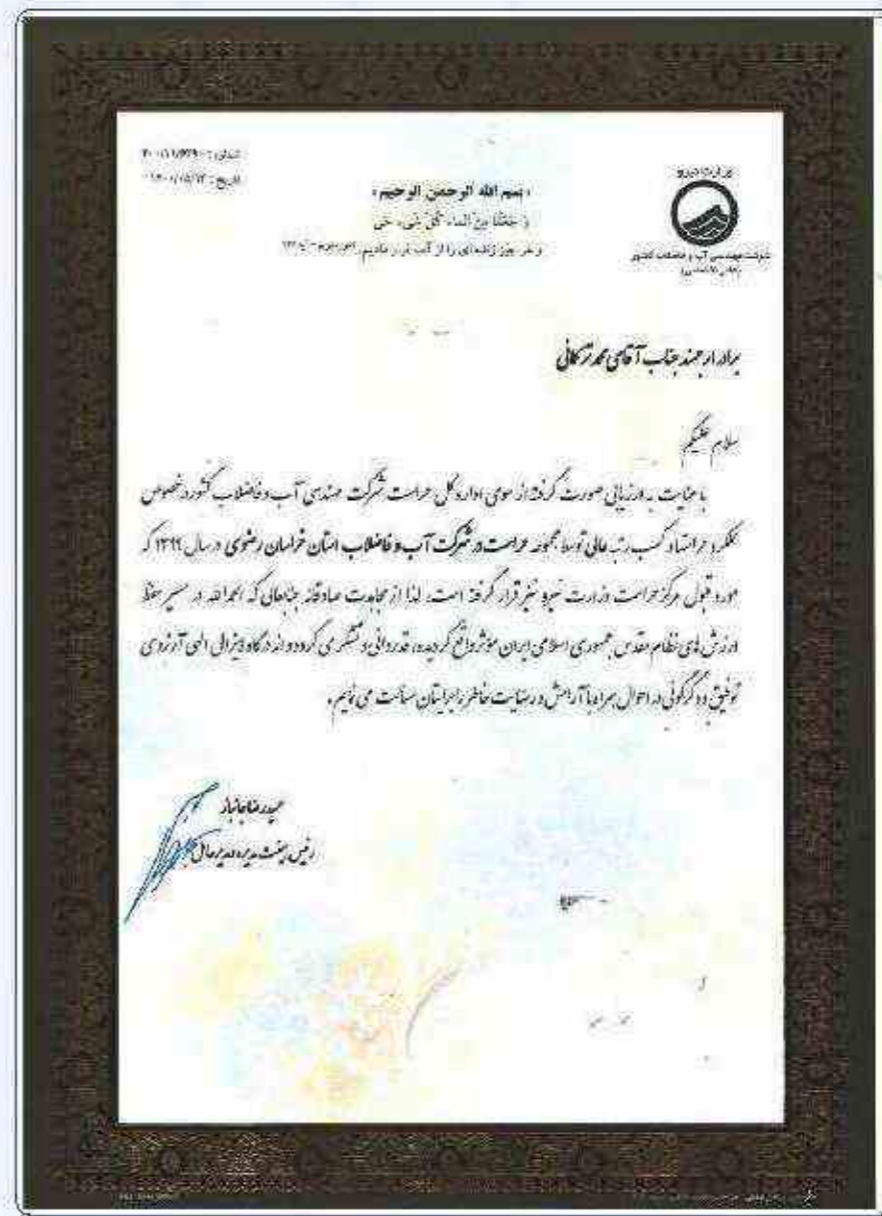 وزارت نیرو
شرکت مهندسی آب و فاضلاب کشور
شماره:
تاریخ:
« بسم الله الرحمن الرحیم »
و جعلنا من الماء کل شیء حی
و هر چیز زنده ای را از آب قرار دادیم.
برادر ارجمند جناب آقای محمد ترکانی
سلام علیکم
با عنایت به ارزیابی صورت گرفته از سوی اداره کل حراست شرکت مهندسی آب و فاضلاب کشور درخصوص
عملکرد حراستها و کسب رتبه عالی توسط مجموعه حراست در شرکت آب و فاضلاب استان خراسان رضوی در سال ۱۳۹۹ که
مورد قبول مرکز حراست وزارت نیرو نیز قرار گرفته است، لذا از مجاهدت صادقانه جنابعالی که الحمدالله در مسیر حفظ
ارزش های نظام مقدس جمهوری اسلامی ایران موثر واقع گردیده، قدردانی و تشکر می گردد و از درگاه لایزال الهی آرزوی
توفیق و دگرگونی در احوال همراه با آرامش و رضایت خاطر را برایتان مسألت می نمایم.
حمیدرضا جانباز
رئیس هیئت مدیره و مدیرعامل